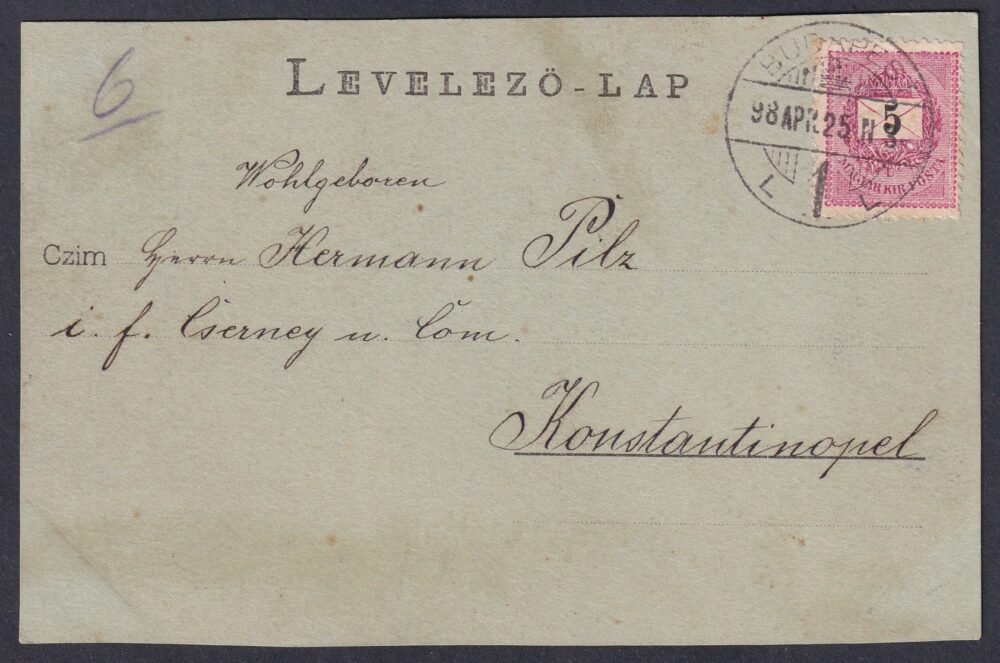 6
LEVELEZÖ-LAP
BUDAPEST
98 APR. 25 N 3
L. 1 L
5
MAGYAR KIR. POSTA
Wohlgeboren
Czim Herrn Hermann Pilz
i. f. Cserney u. Com.
Konstantinopel